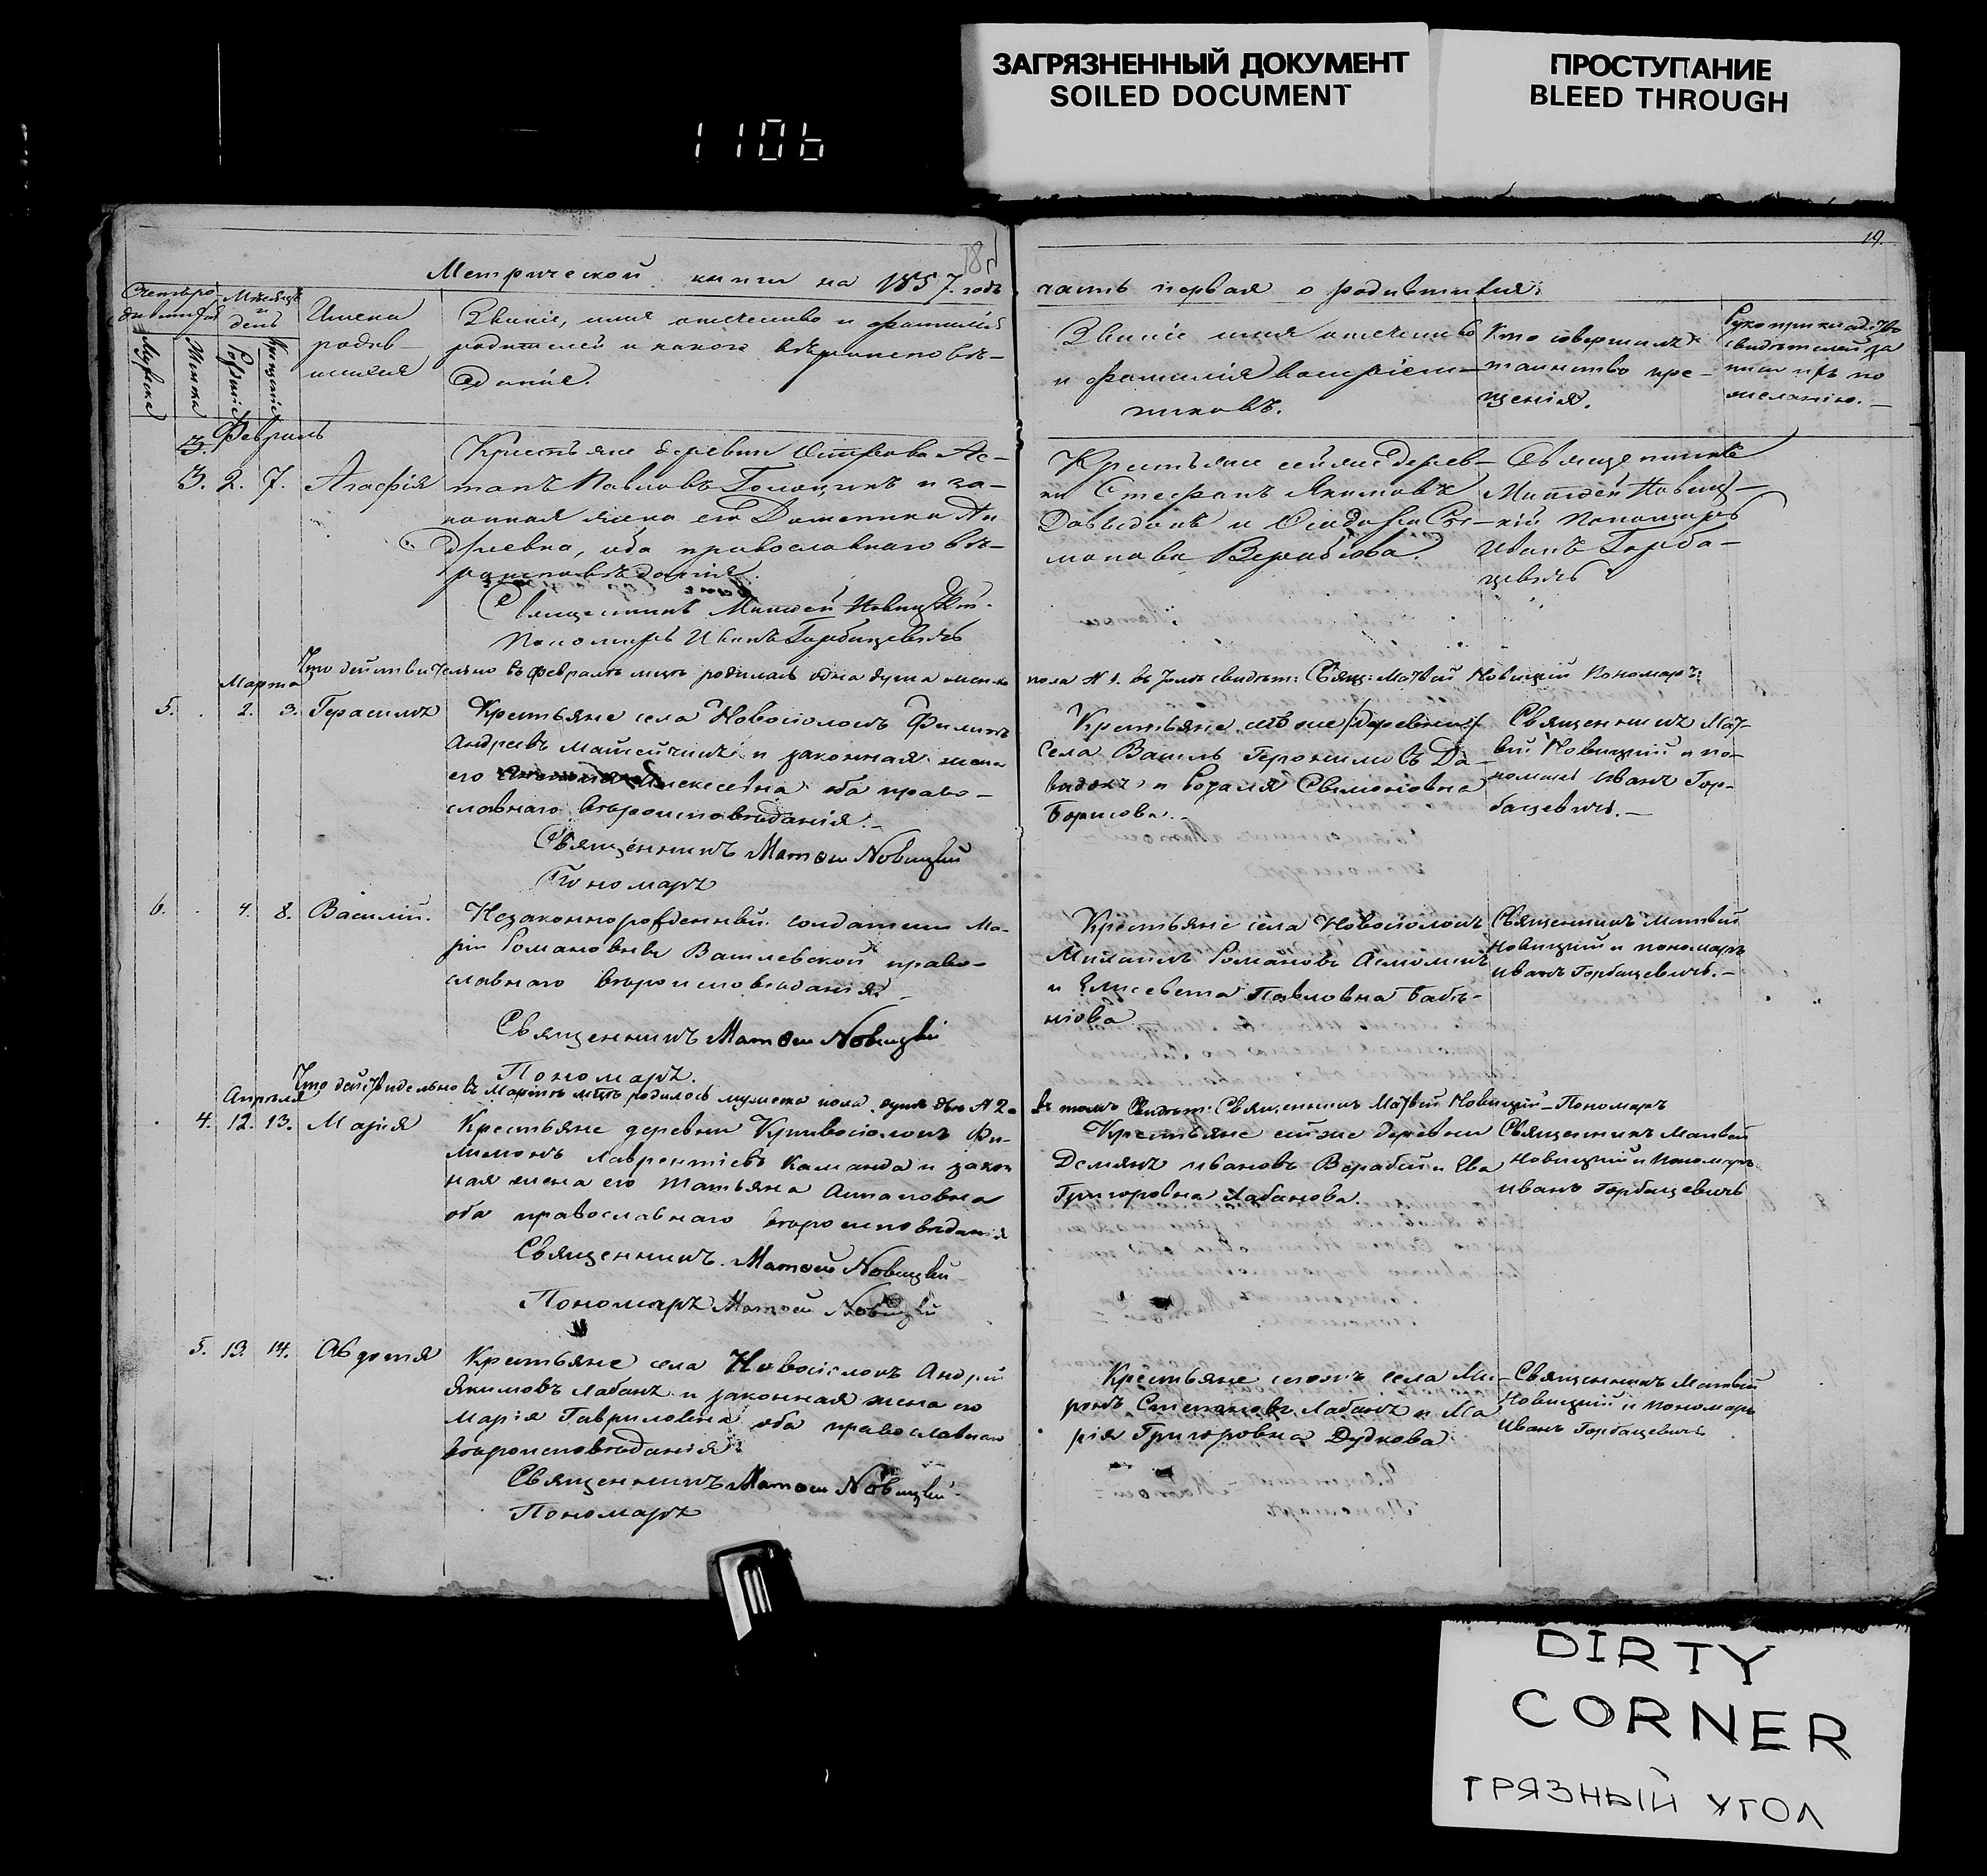 ЗАГРЯЗНЕННЫЙ ДОКУМЕНТ
SOILED DOCUMENT
ПРОСТУПАНИЕ
BLEED THROUGH
1106
19.
Метрической книги на 1857. годъ
часть первая о родившихся:
Мѣсяцъ и день
Мужска
Женска
Рожденіе
Крещеніе
Имена
родив-
шихся
Званіе, имя отечество и фамилія
родителей и какого вѣроисповѣ-
данія.
Званіе имя отечество
и фамилія воспріем-
никовъ.
Кто совершалъ
таинство кре-
щенія.
Рукоприкладство
свидѣтелей за
писи ихъ по
желанію.
Февраль
3. 2. 7. Агафія
Крестьяне деревни Острова Ас-
тапъ Павловъ Голоцукъ и за-
конная жена его Домникія Ан
дреевна, оба православнаго вѣ-
роисповѣданія.
Священникъ Матѳей Новицкій.
Пономарь Иванъ Горбацевичъ
Крестьяне сей же дерев-
ни Стефанъ Якимовъ
Давыдокъ и
Священникъ
Матѳей Новиц-
кій Пономарь
Иванъ Горба-
цевичъ
Что действительно въ Февралѣ мцѣ родилась одна душа женска
пола № 1. въ томъ свидѣт: Свящ: Матвій Новицкій Пономарь:
Марта
5. 2. 3. Герасимъ
Крестьяне села Новосіолокъ Филипъ
Андреевъ Матейчикъ и законная жена
его Алексеевна оба право-
славнаго вѣроисповѣданія.
Священникъ Матѳей Новицкій
Пономарь
Крестьяне
села Василь Герасимовъ Да-
видокъ и Розалія Свимоновна
Борисова.
Священникъ Мат-
вій Новицкій и по-
номарь Иванъ Гор-
бацевичъ.
6. 4. 8. Василій.
Незаконнорожденный солдатки Ма-
ріи Романовны Василевской право-
славнаго вѣроисповѣданія.
Священникъ Матѳей Новицкій
Пономарь.
Крестьяне села Новосіолокъ
Михаилъ Романовъ
и Елисевета Павловна Баб-
Священникъ Матвій
Новицкій и пономарь
Иванъ Горбацевичъ.
Что действительно въ Мартѣ мцѣ родилось мужеска пола душъ двѣ № 2.
въ томъ свидѣт: Священникъ Матвій Новицкій Пономарь
Апрѣля
4. 12. 13. Марія
Крестьяне деревни Кривосіолокъ Фи-
лимонъ Лаврентіевъ Каманда и закон
ная жена его Татьяна Астаповна
оба православнаго вѣроисповѣданія
Священникъ. Матѳей Новицкій
Пономарь Матѳей Новицкій
Крестьяне сей же деревни
Демянъ Ивановъ Верабей и Ева
Григоровна Лабанова.
Священникъ Матвей
Новицкій и пономарь
Иванъ Горбацевичъ
5. 13. 14. Авдотія
Крестьяне села Новосіолокъ Андрей
Якимовъ Лабанъ и законная жена его
Марія Гавриловна оба православнаго
вѣроисповѣданія.
Священникъ Матѳей Новицкій
Пономарь
Крестьяне села Ми-
ронъ Степановъ Лабанъ и Ма
рія Григоровна Дудкова
Священникъ Матвій
Новицкій и пономарь
Иванъ Горбацевичъ
DIRTY
CORNER
ГРЯЗНЫЙ УГОЛ